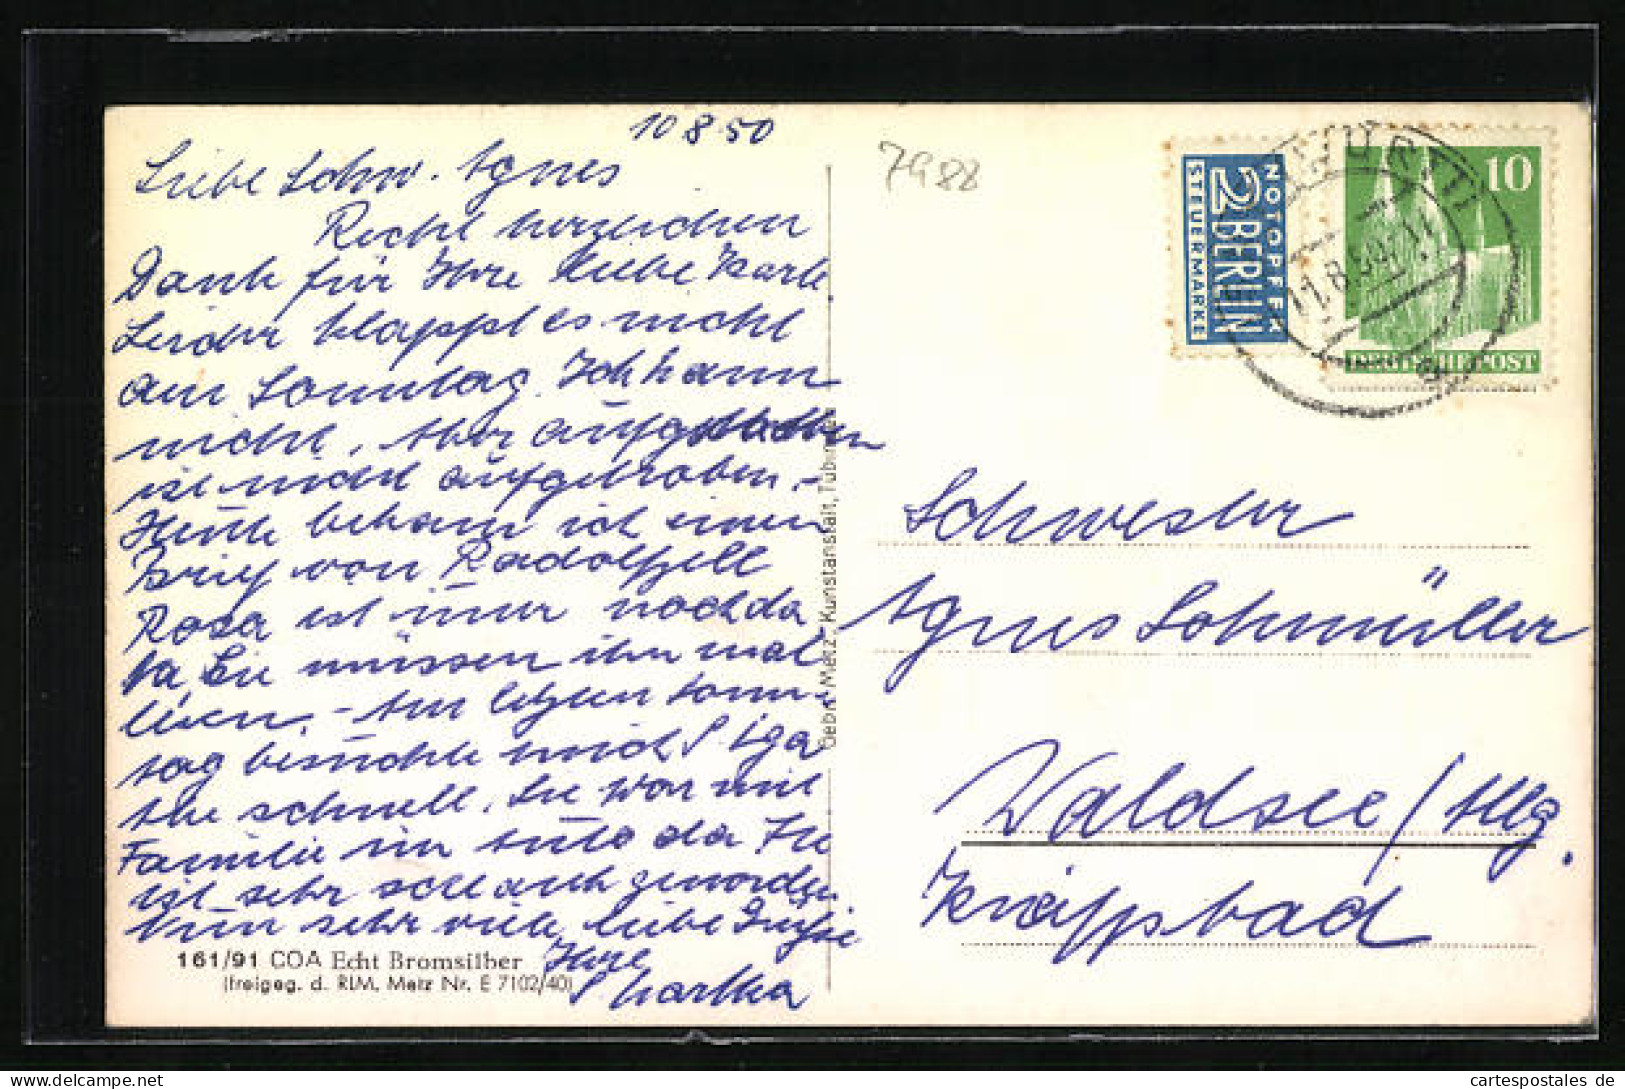 10 8 50
Liebe Schw. Agnes
Recht herzlichen
Dank für Ihre liebe Karte.
Leider klappt es nicht
am Sonntag. Ich kann
nicht, aber
ist nicht aufgehoben.-
Heute bekam ich einen
Brief von Radolfzell
Rosa ist imer noch da
Ja, Sie müssen ihn mal
lesen. - Am letzten Sonn-
tag besuchte mich S.
schnell. Sie war mit
Familie im Auto da. Sie
ist sehr
Nun sehr viele, liebe Grüße
Ihre
S
161/91 COA Echt Bromsilber
(freigeg. d. RLM. Metz Nr. E 7102/40)
Gebr. Metz, Kunstanstalt, Tübingen
7988
NOTOPFER
2 BERLIN
STEUERMARKE
10
DEUTSCHE POST
11.8.50
Schwester
Agnes Schmüller
Waldsee / Wttg.
Kneippbad
cartespostales de